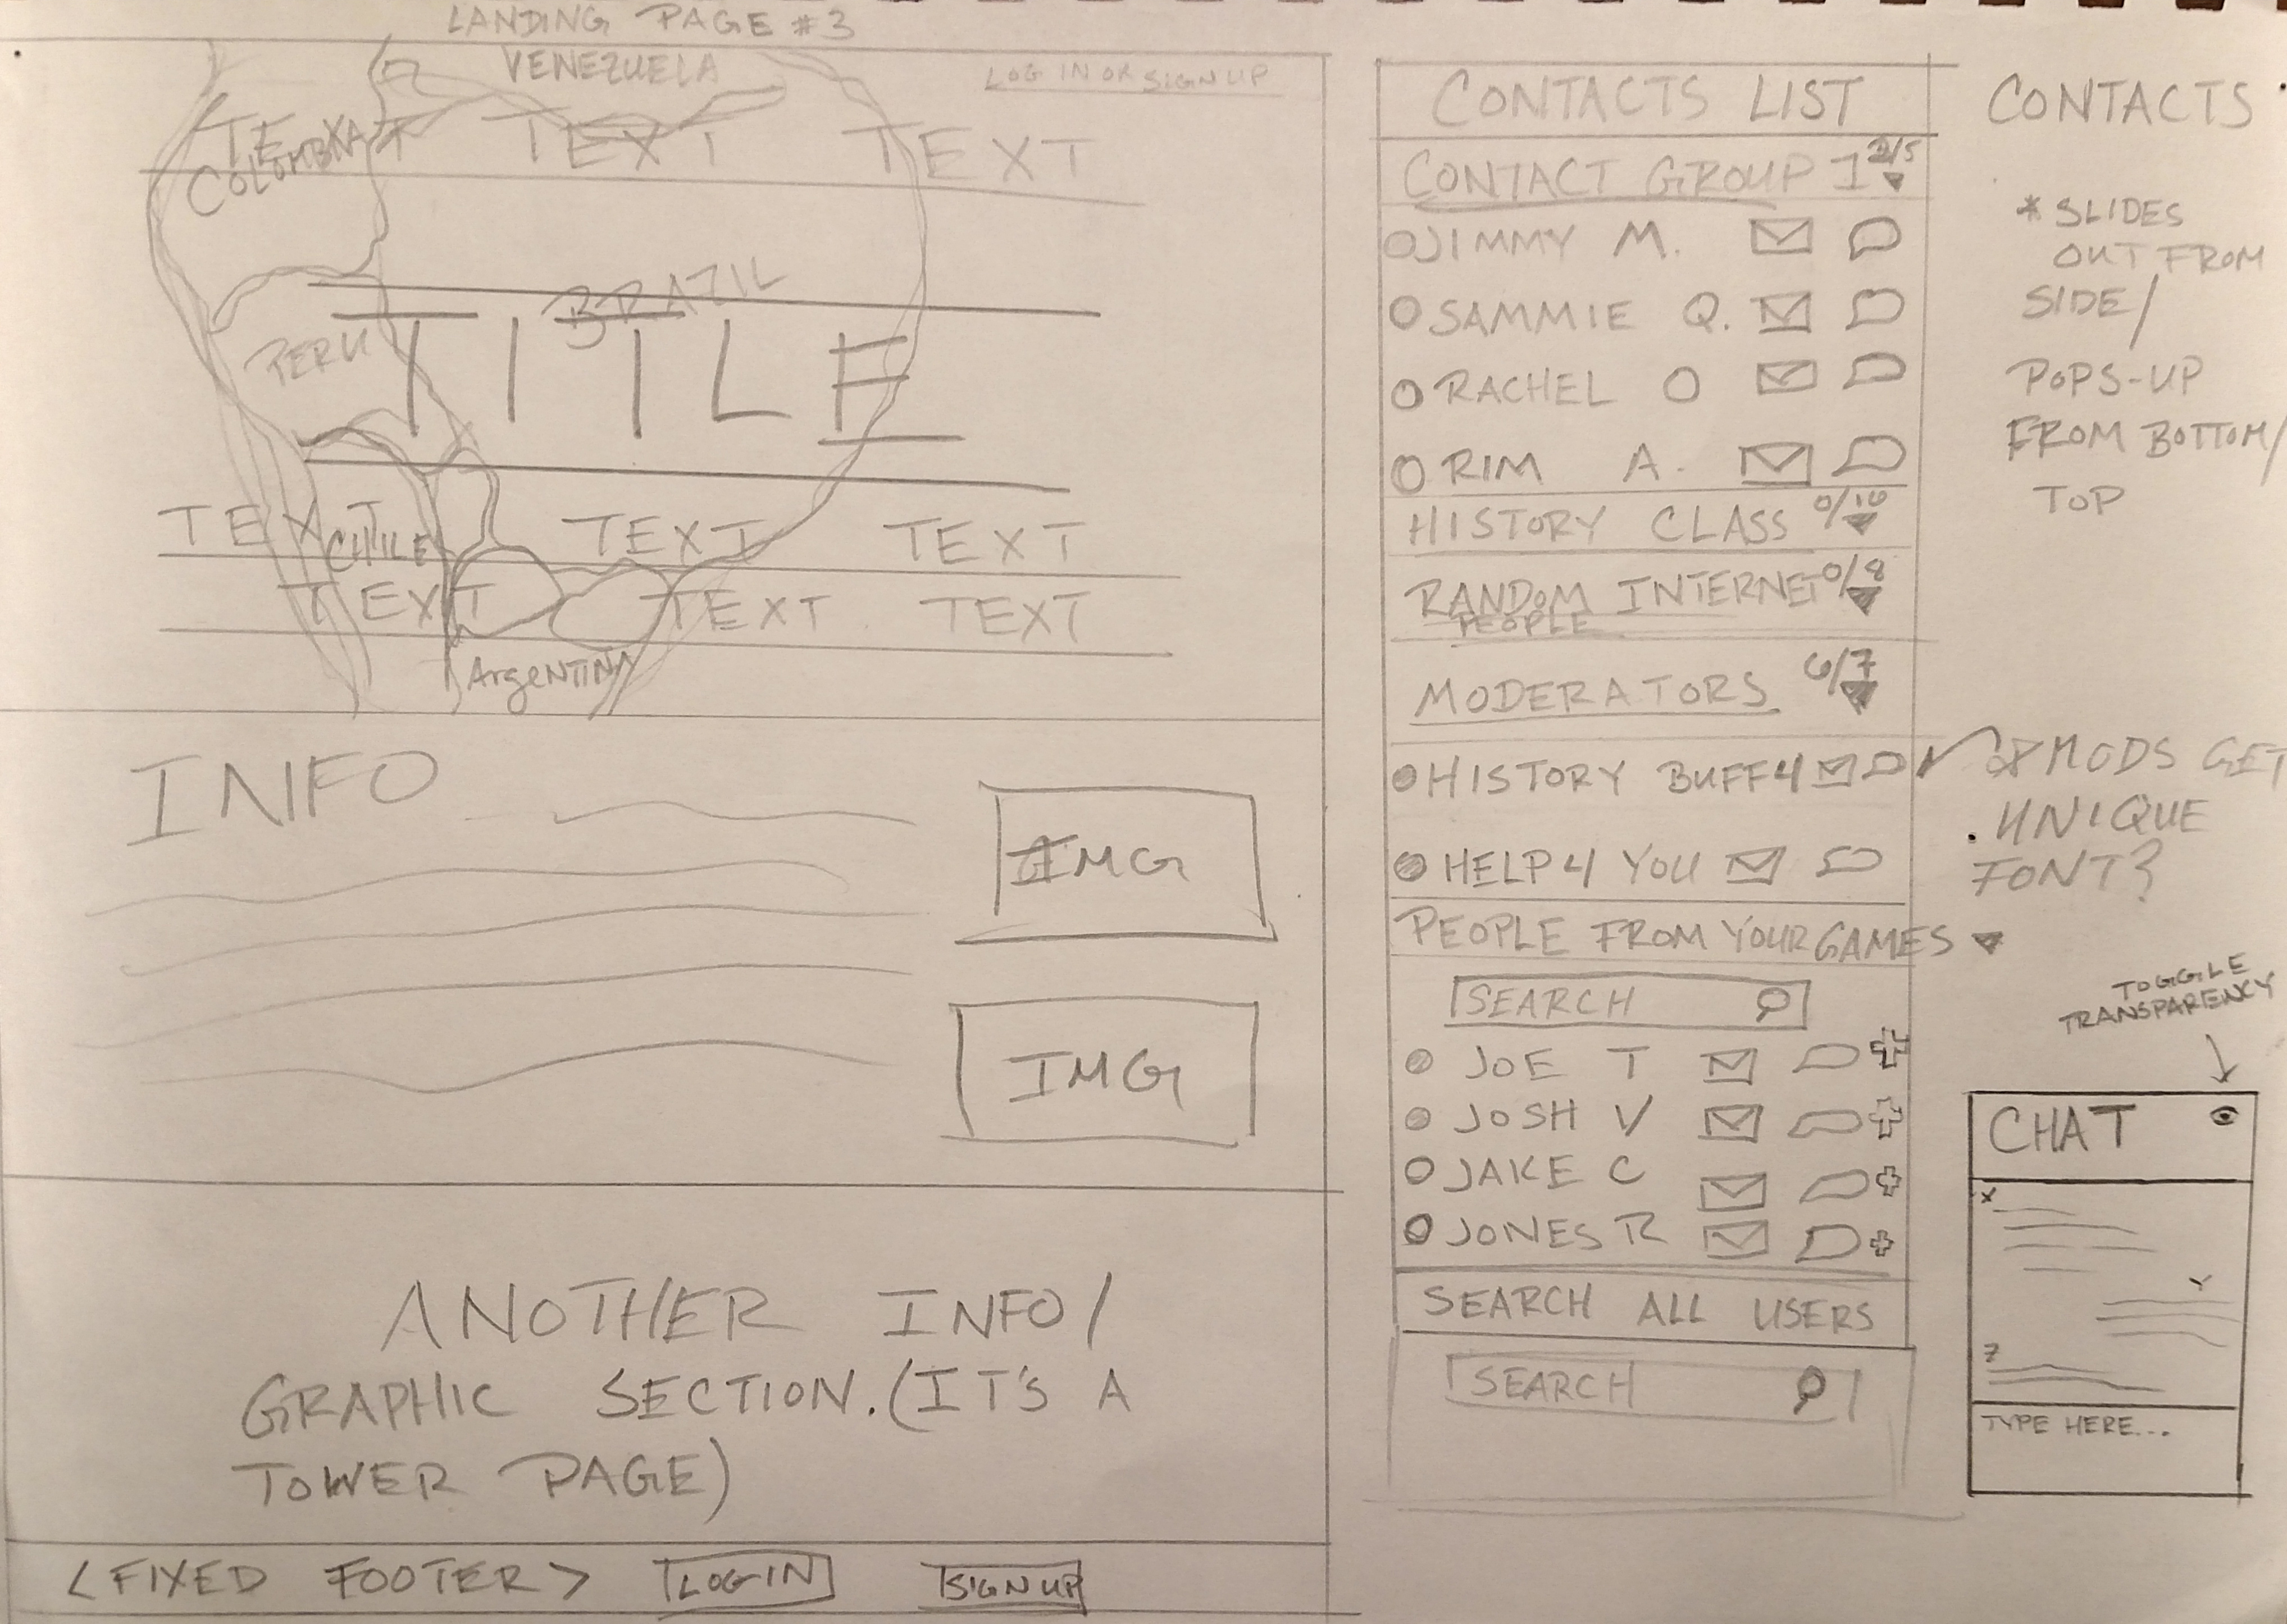 LANDING PAGE #3
VENEZUELA
LOG IN OR SIGN UP
TEXT TEXT TEXT
COLOMBIA
BRAZIL
PERU
TITLE
TEXT TEXT TEXT
CHILE
TEXT TEXT TEXT
ArgeNTINA
INFO
IMG
IMG
ANOTHER INFO/
GRAPHIC SECTION. (IT'S A
TOWER PAGE)
<FIXED FOOTER> LOG IN SIGN UP
CONTACTS LIST
CONTACT GROUP 1 2/5
JIMMY M.
SAMMIE Q.
RACHEL O
RIM A.
HISTORY CLASS 0/10
RANDOM INTERNET 0/8
PEOPLE
MODERATORS 6/7
HISTORY BUFF4
HELP4 YOU
PEOPLE FROM YOUR GAMES
SEARCH
JOE T
JOSH V
JAKE C
JONES R
SEARCH ALL USERS
SEARCH
CONTACTS
* SLIDES
OUT FROM
SIDE/
POPS-UP
FROM BOTTOM/
TOP
* MODS GET
UNIQUE
FONT?
TOGGLE
TRANSPARENCY
CHAT
X
Y
Z
TYPE HERE...